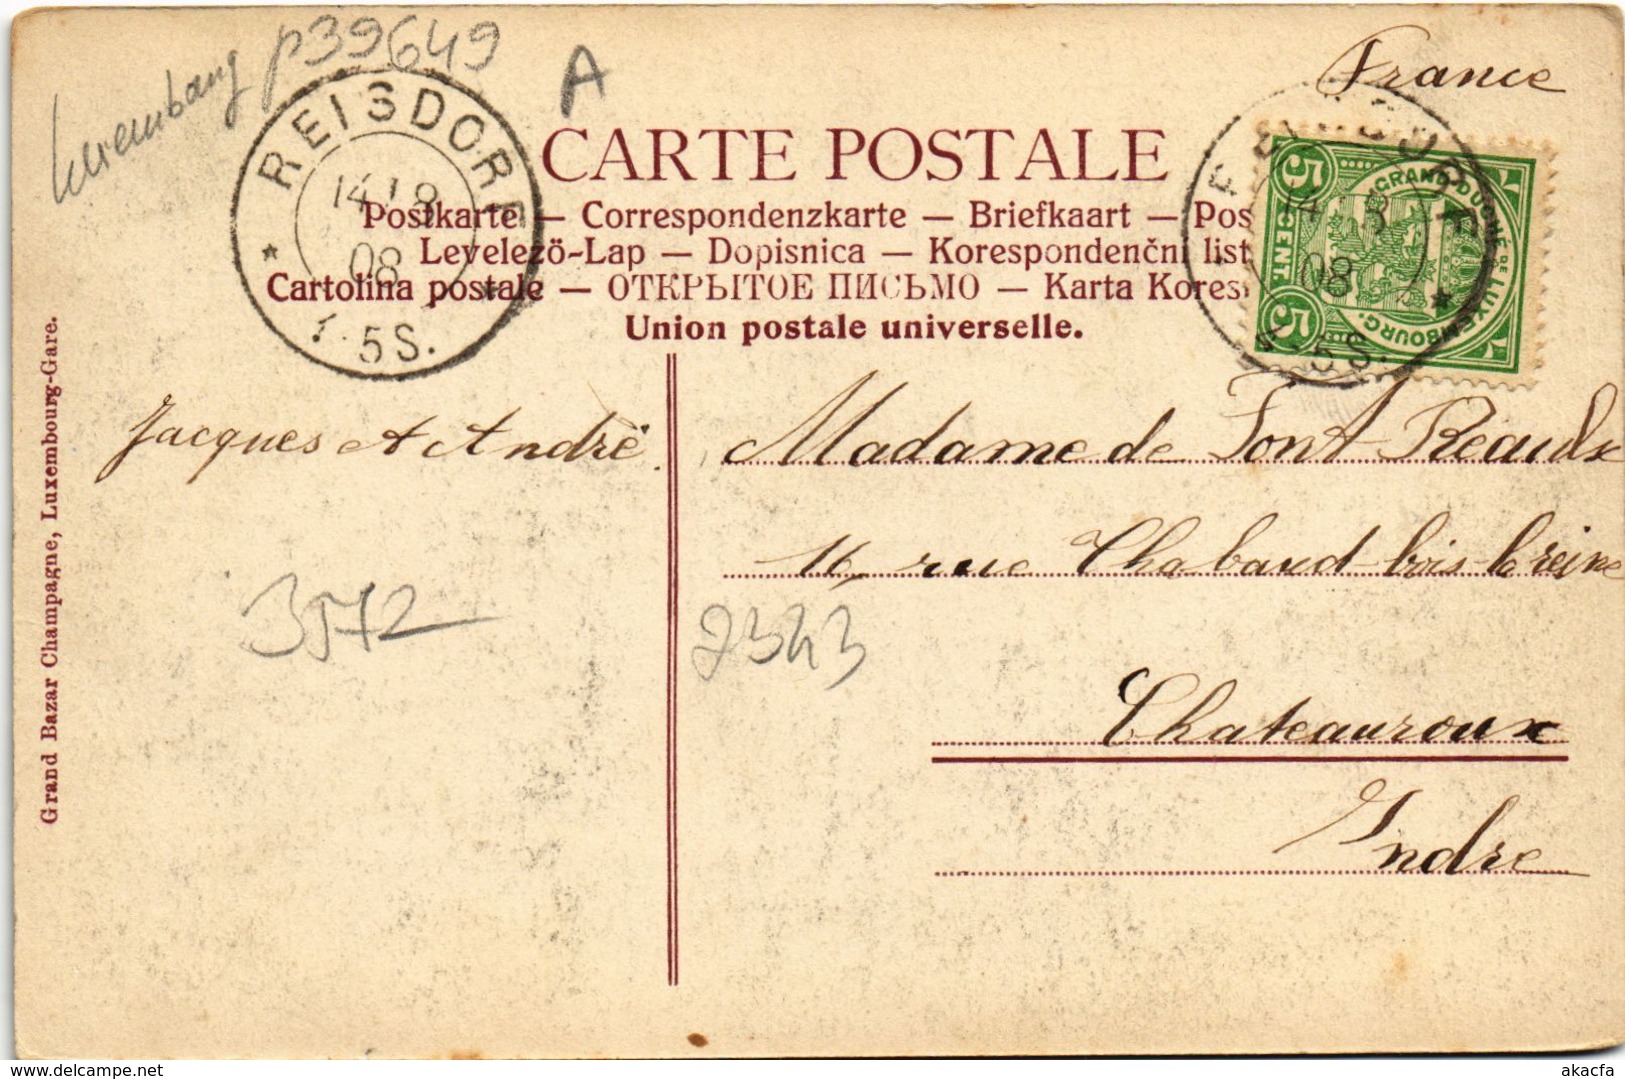 Luxembourg p39649
A
France
REISDORF
14 8
08
5S.
CARTE POSTALE
Postkarte — Correspondenzkarte — Briefkaart — Pos
Levelezö-Lap — Dopisnica — Korespondenčni list
Cartolina postale — ОТКРЫТОЕ ПИСЬМО — Karta Kores
Union postale universelle.
5 CENT. 5
GRAND-DUCHÉ DE LUXEMBOURG.
14 8
08
5S.
Jacques et André.
Madame de Font-Réaulx
16, rue Chabaud-bois la reine
Chateauroux
Indre
3572
2343
Grand Bazar Champagne, Luxembourg-Gare.
www.delcampe.net
akacfa